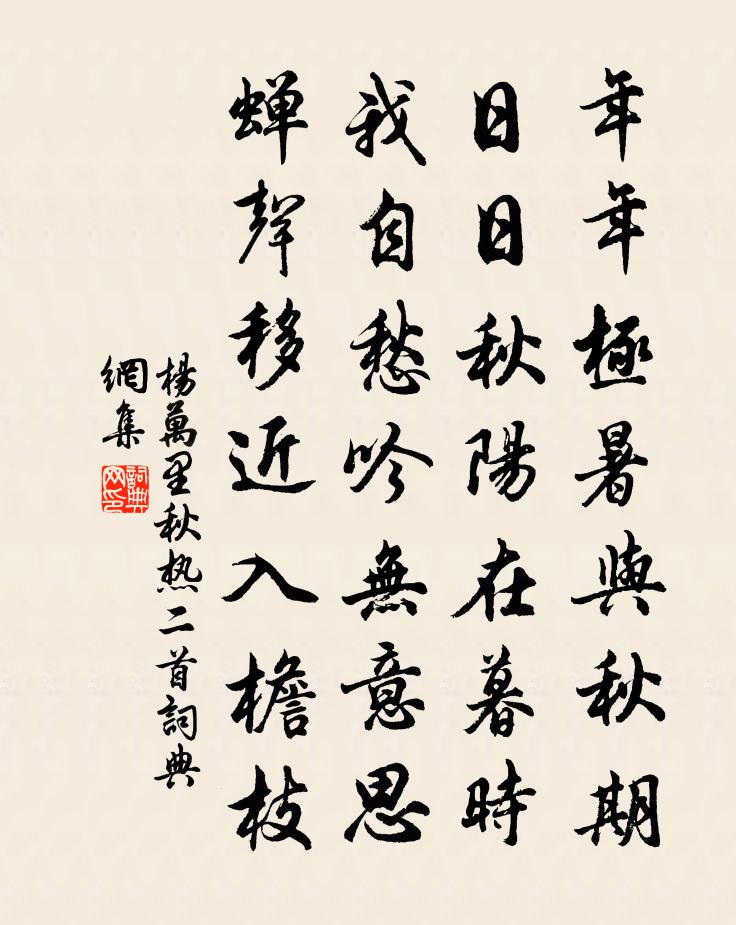 年年極暑與秋期
日日秋陽在暮時
我自愁吟無意思
蝉聲移近入檐枝
楊萬里秋热二首詞典
網集
詞典
网印